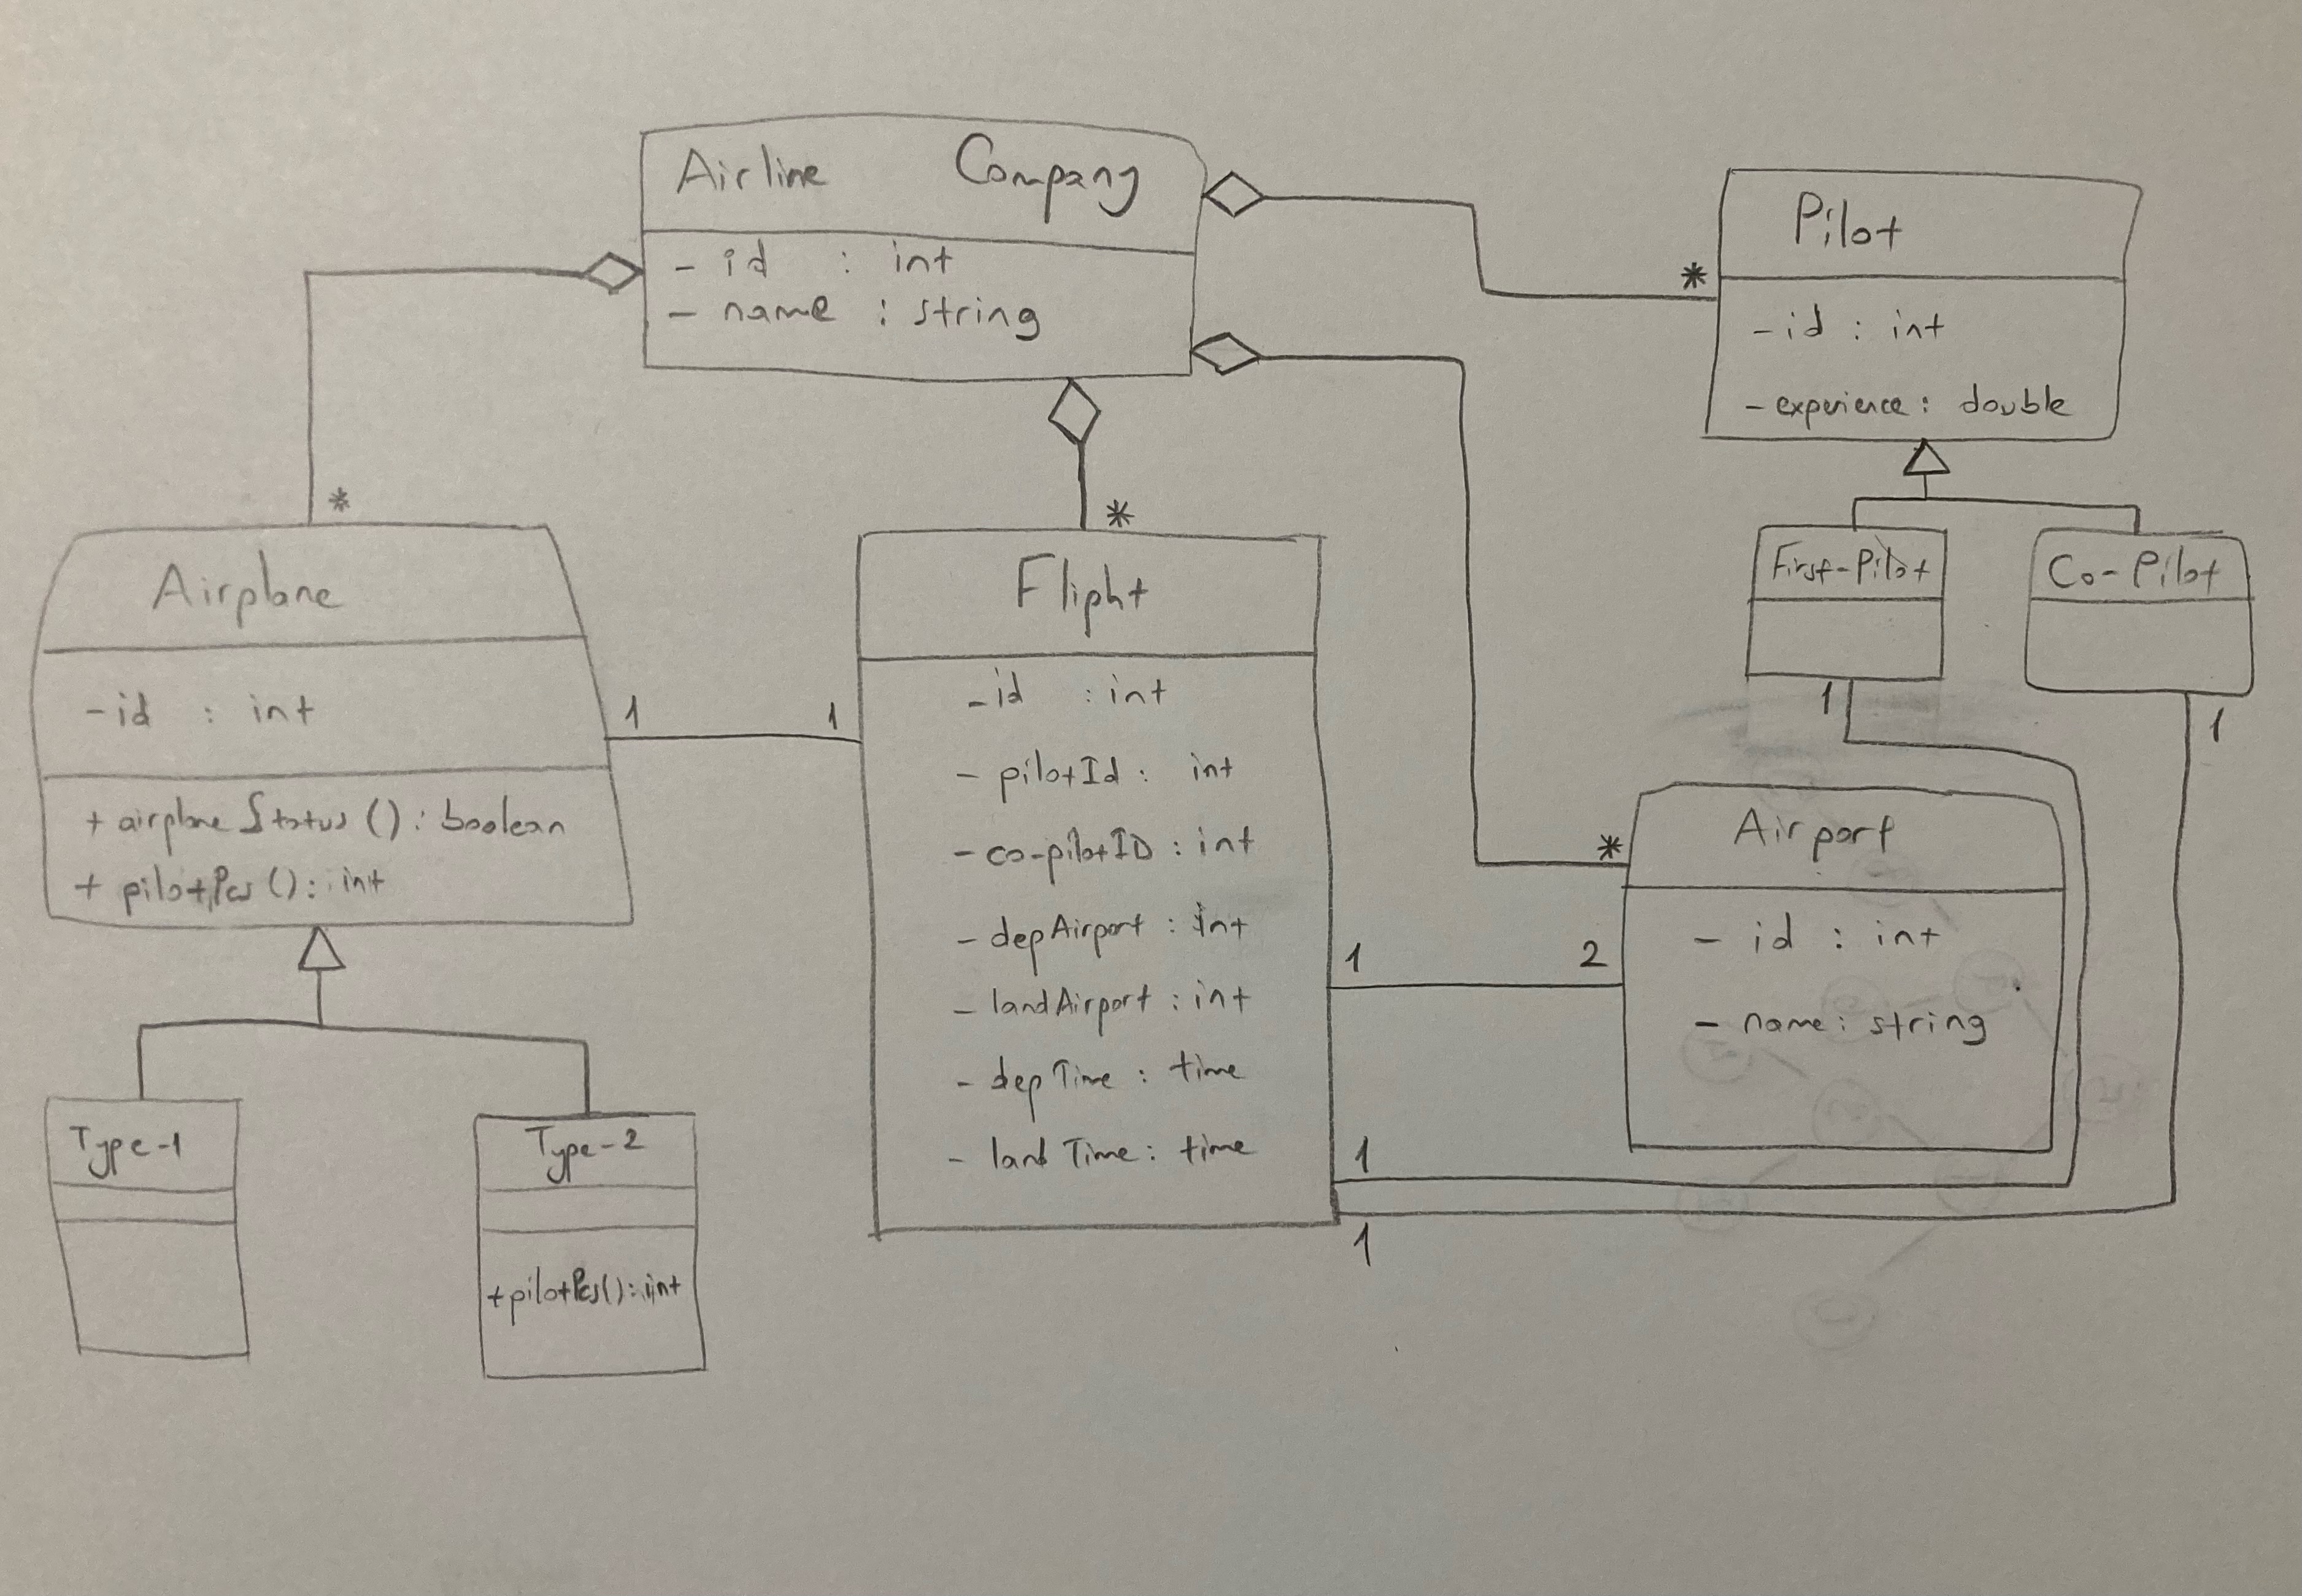 Airline Company
- id : int
- name : string
*
Pilot
- id : int
- experience : double
*
Airplane
- id : int
+ airplaneStatus() : boolean
+ pilotPcs() : int
*
Flight
- id : int
- pilotId : int
- co-pilotID : int
- depAirport : int
- landAirport : int
- depTime : time
- landTime : time
First-Pilot
Co-Pilot
1
1
1
1
*
Airport
- id : int
- name : string
1
2
1
1
Type-1
Type-2
+ pilotPcs() : int